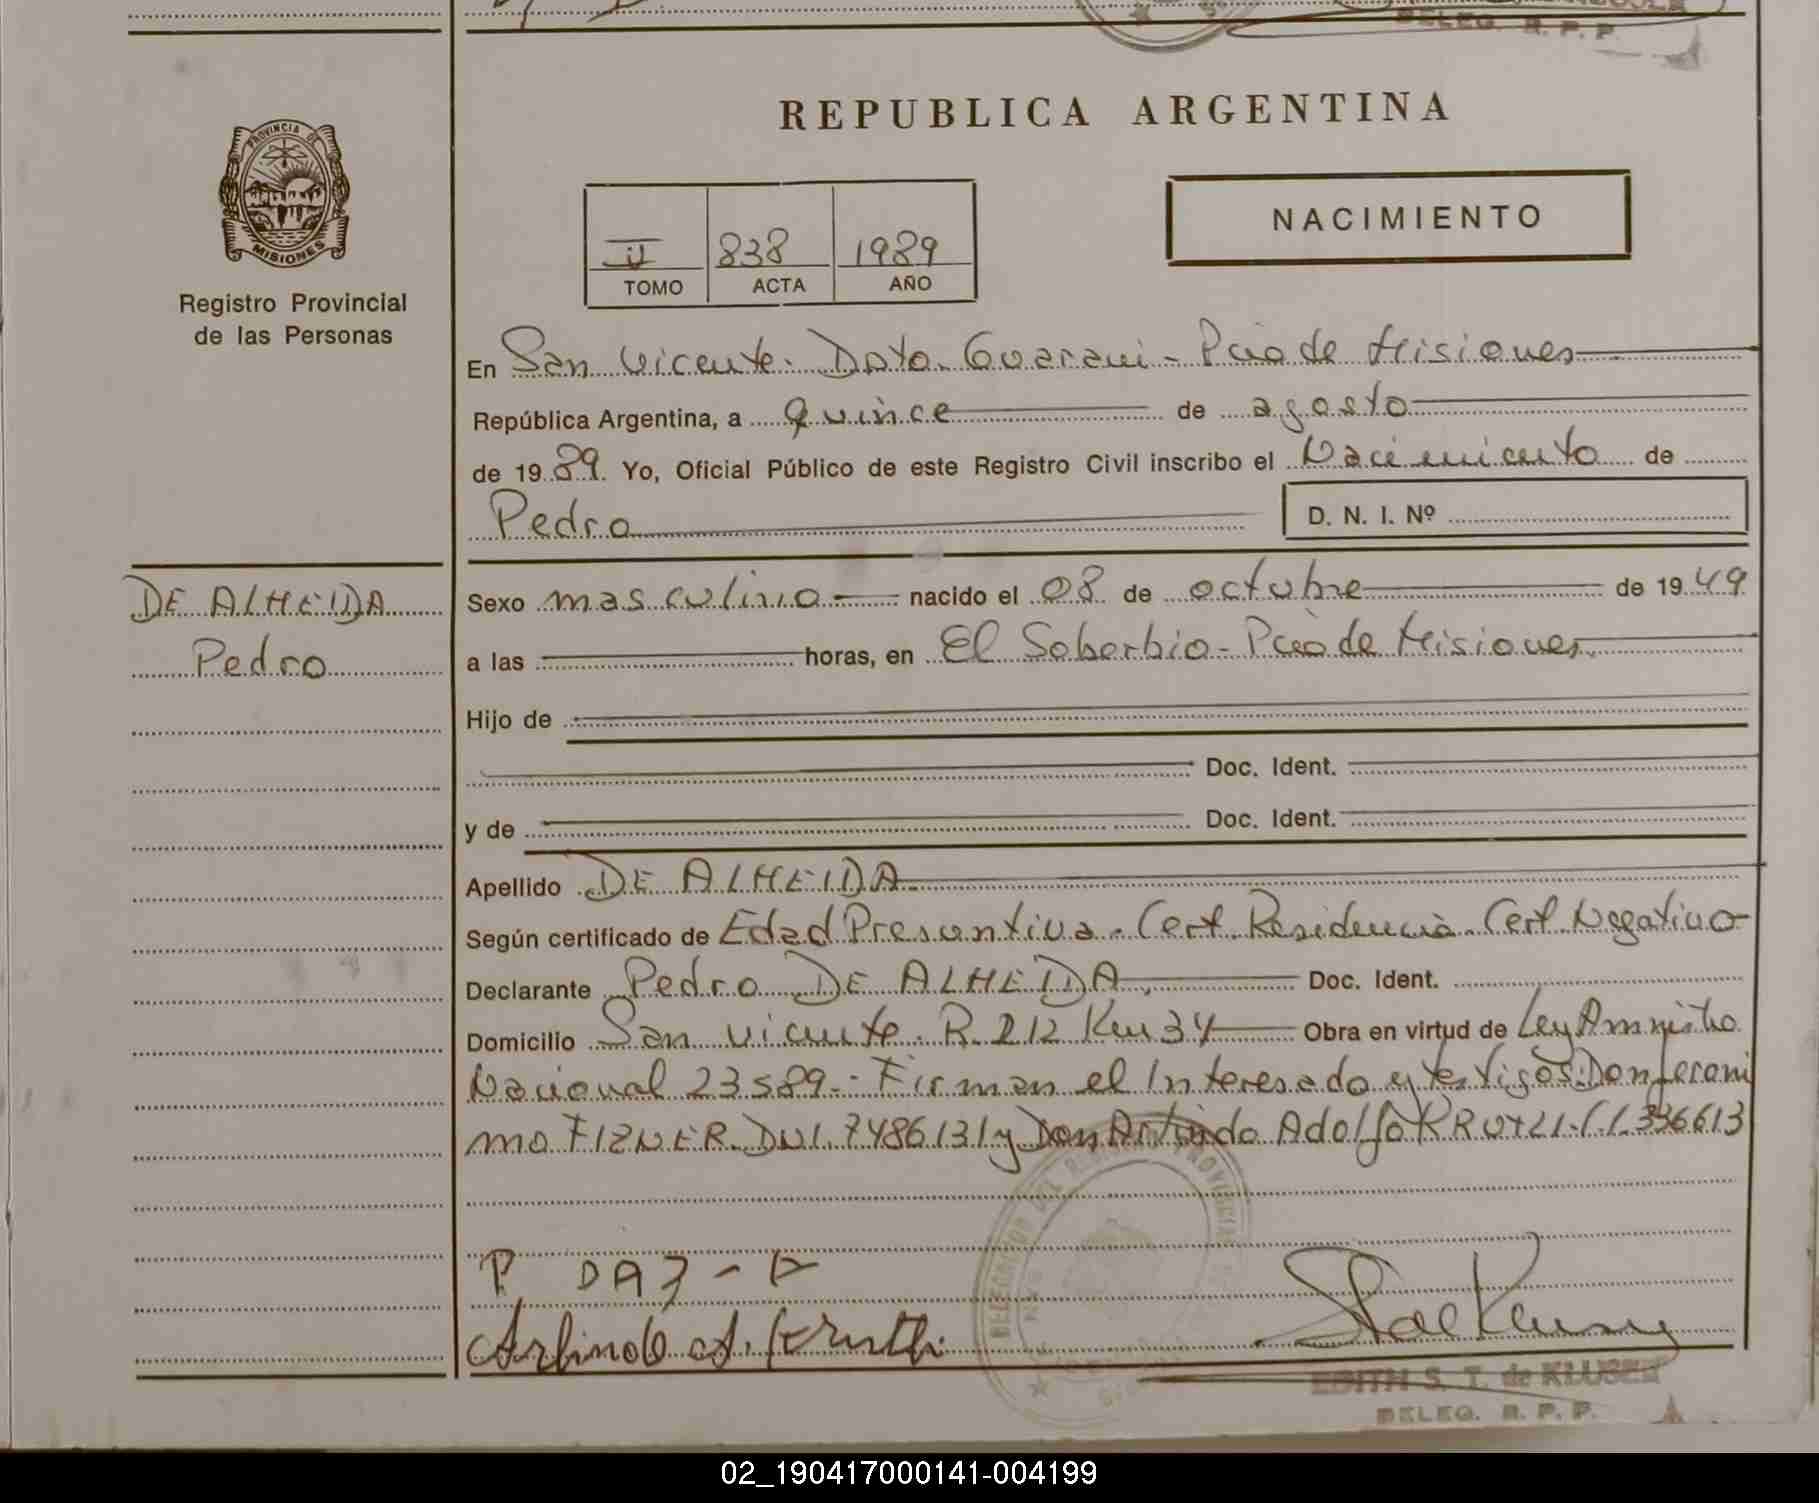 BELEG. R. P. P.
REPUBLICA ARGENTINA
PROVINCIA DE
MISIONES
NACIMIENTO
II 838 1989
TOMO ACTA AÑO
Registro Provincial
de las Personas
En San Vicente. Dpto. Guarani - Pcia de Misiones
República Argentina, a quince de agosto
de 19 89. Yo, Oficial Público de este Registro Civil inscribo el Nacimiento de
Pedro D. N. I. Nº
DE ALMEIDA
Pedro
Sexo masculino nacido el 08 de octubre de 19 49
a las horas, en El Soberbio - Pcia de Misiones.
Hijo de
Doc. Ident.
y de Doc. Ident.
Apellido DE ALMEIDA
Según certificado de Edad Presuntiva. Cert. Residencia. Cert. Negativo
Declarante Pedro DE ALMEIDA. Doc. Ident.
Domicilio San Vicente. R. 212 Km 34 Obra en virtud de Ley Amnistia
Nacional 23589.- Firman el Interesado y testigos: Don Jeroni
mo FIZNER. DNI. 7486131 y Don Arlindo Adolfo KRUTLI. C.I. 336613
P DA
Arlindo A. Kruthi
EDITH S. T. de KLUSEN
BELEG. R. P. P.
02_190417000141-004199